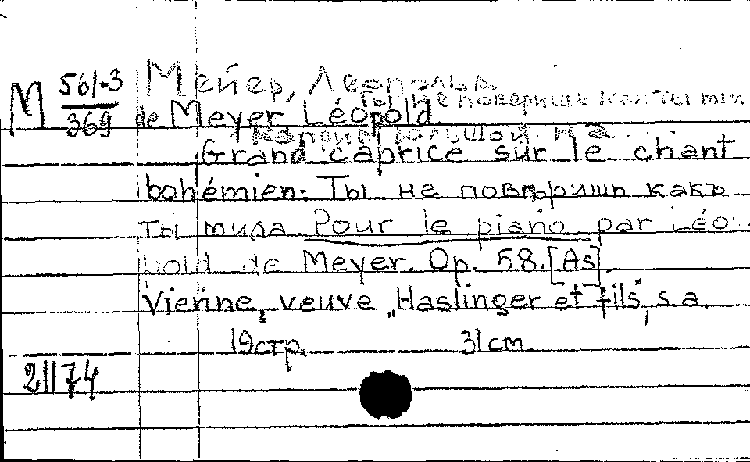 Мейер, Леопольд
М 561-3
369
не поверишь как ты ми
de Meyer Léopold.
большой. на
Grand caprice sur le chant
bohémien: Ты не повѣришь какъ
ты мила Pour le piano par Léo-
pold de Meyer. Op. 58. [As].
Vienne, veuve „Haslinger et fils", s.a.
19стр. 31 cm.
21174